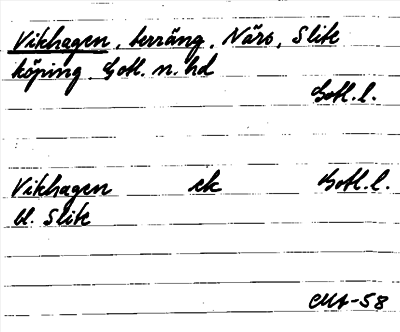 Vikhagen, terräng, Närs, Slite
köping, Gotl. n. hd
Gotl. l.
Vikhagen ek Gotl. l.
bl. Slite